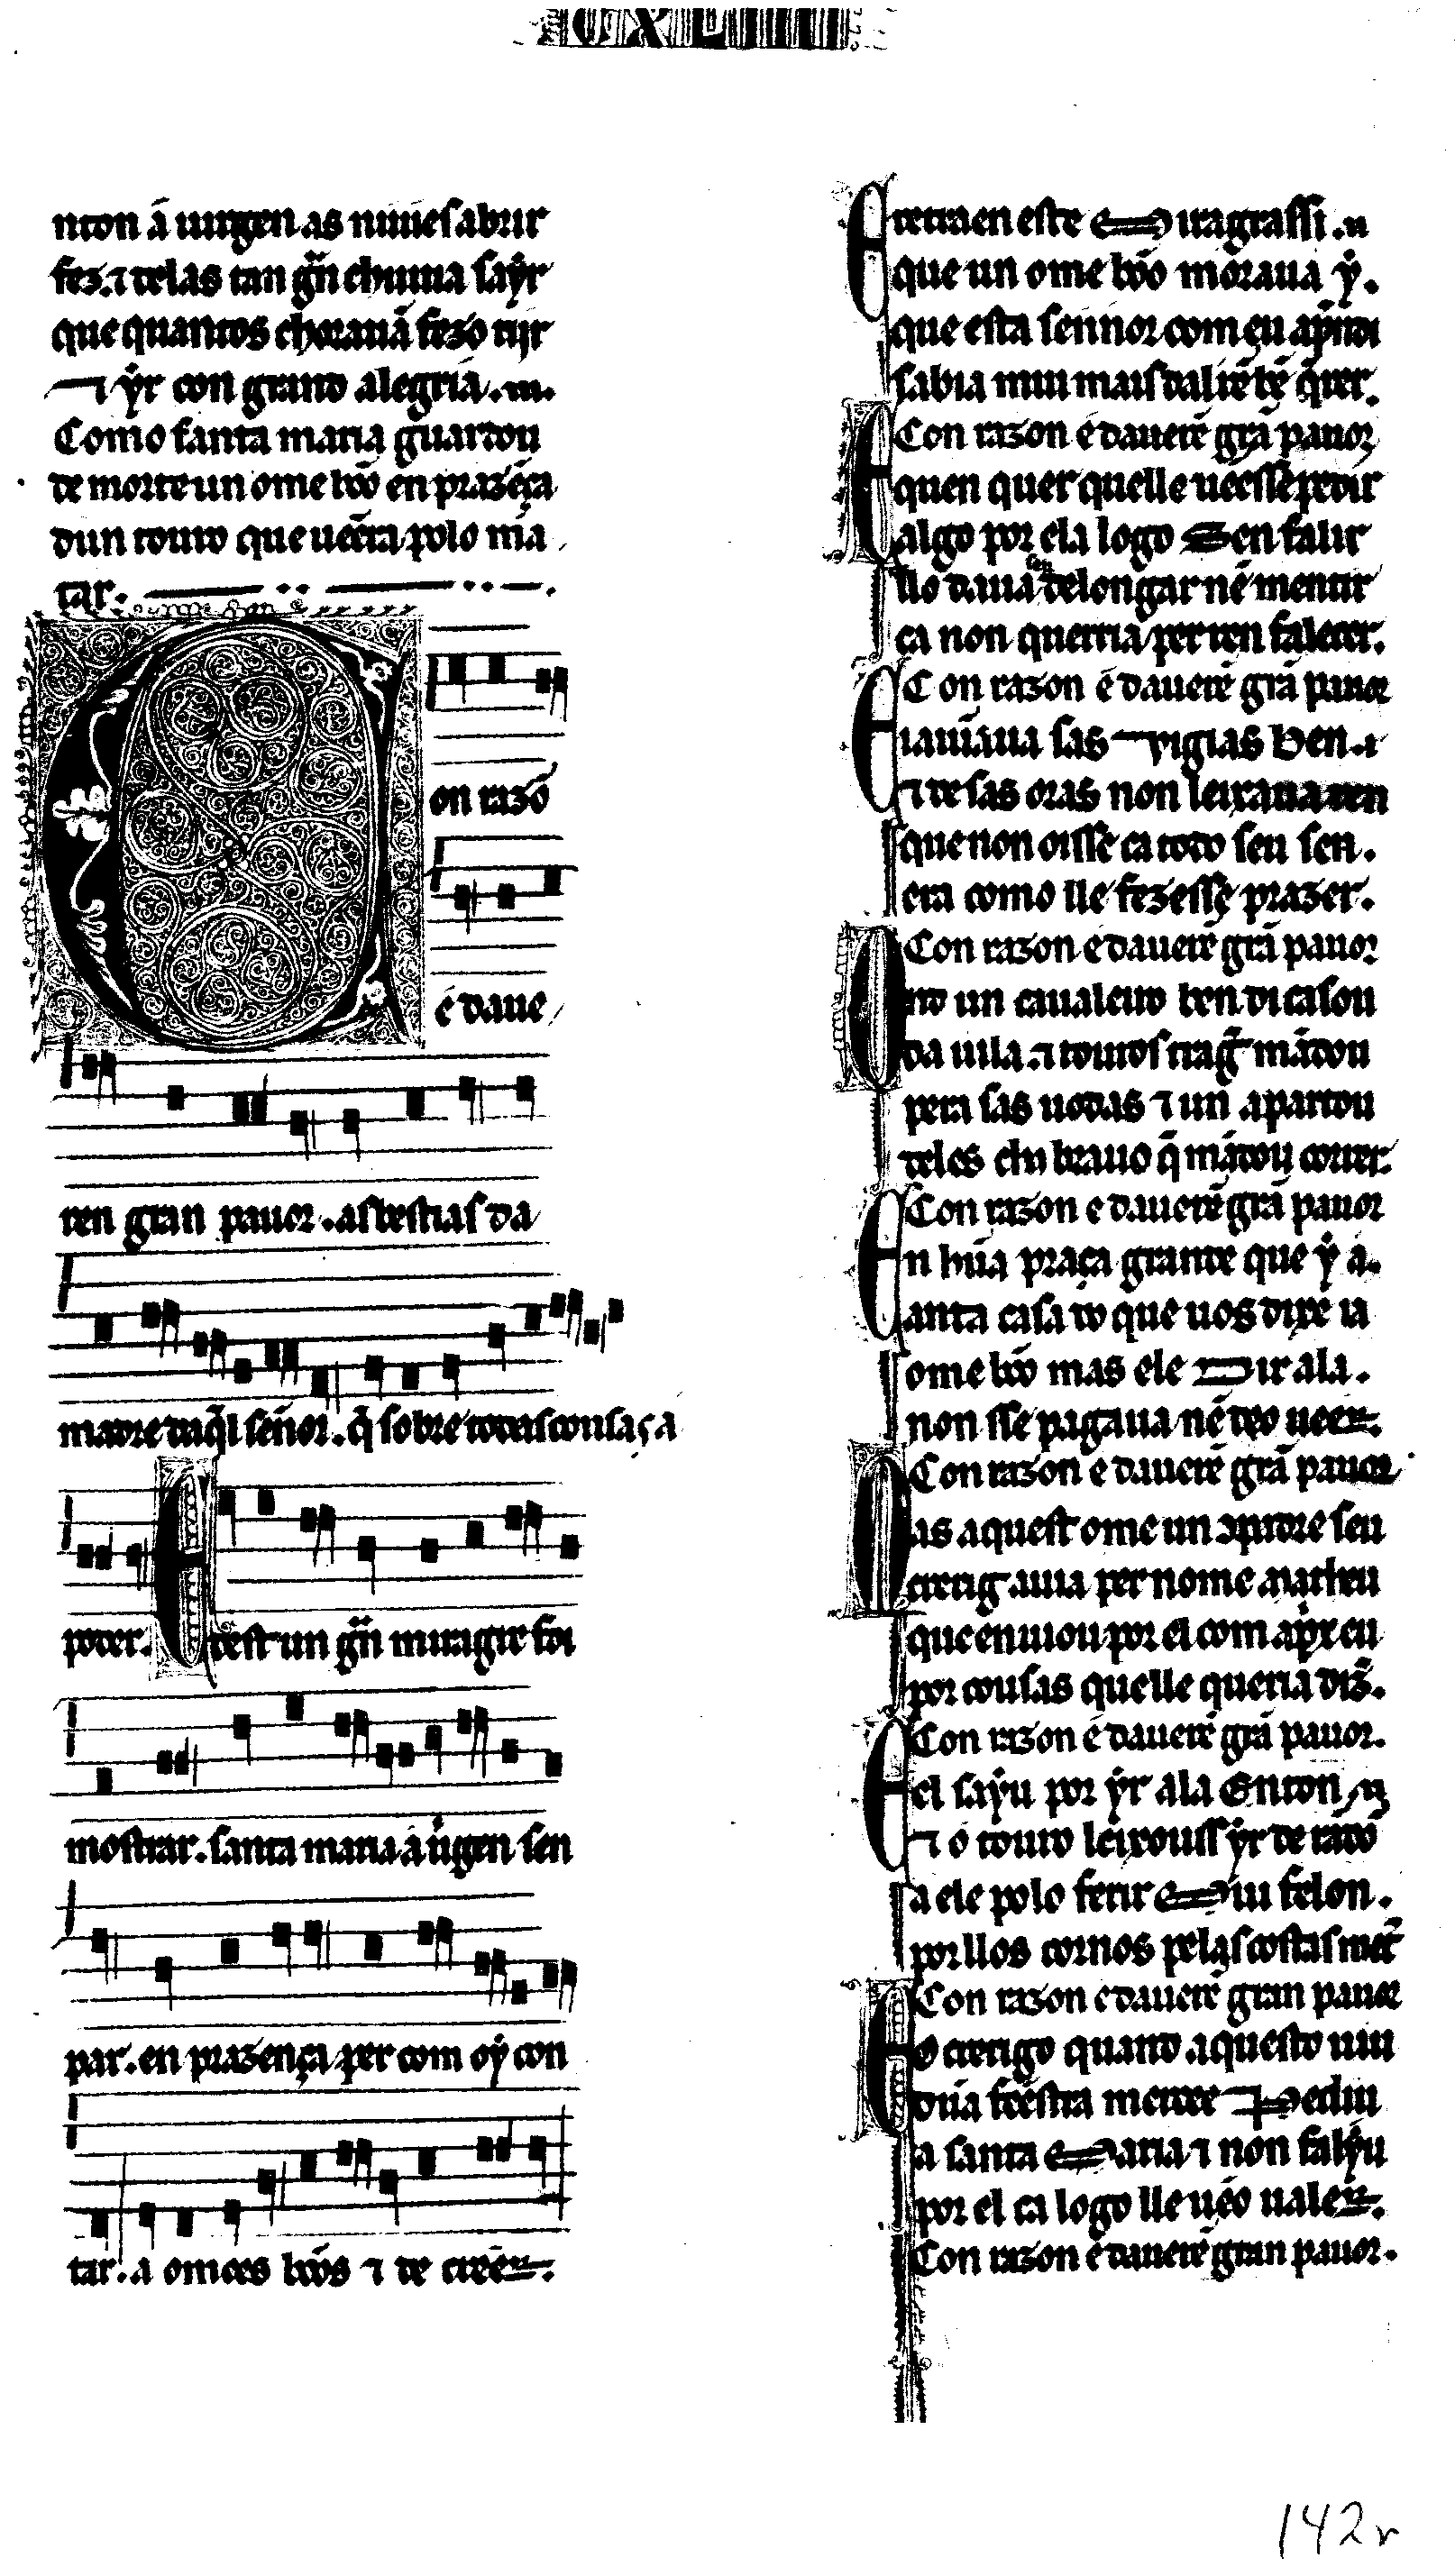 CXLIIII
nton á uirgen as nuués abrir
fez. ⁊ delas tan gr̃n chuuia saỳr
que quantos chorauã fezo rijr
⁊ ỳr con grand alegria. m.
Como santa maria guardou
de morte un ome bõo en prazẽça
dun touro que uẽera polo ma
tar.
Con razõ
é daue
ren gran pauor. as bestias da
madre daq̃l sẽnor. q̃ sobre todas cousas á
poder. E dest un gr̃n miragre foi
mostrar. santa maria a uirgen sen
par. en prazença per com oý con
tar. a omẽes bõos ⁊ de creer.
E retraen este Miragr assi. u
que un ome bõo moraua ỳ.
que esta sennor com eu aprẽdi
sabia mui mais dal ben q̃rer.
Con razon é dauerẽ grã pauor
E quen quer quelle uẽesse pedir
algo por ela logo Sen falir
llo daua sen delongar nẽ mentir
ca non querria per ren falecer.
Con razon é dauerẽ grã pauor
E iaiũaua sas Vigias ben. ⁊
⁊ de sas oras non leixaua ren
que non oisse ca todo seu sen.
era como lle fezesse prazer.
Con razon e dauerẽ grã pauor
Ond un caualeiro ben di casou
da uila. ⁊ touros trager mãdou
pera sas uodas ⁊ un apartou
deles chi brauo q̃ mãdou correr.
Con razon e dauerẽ grã pauor
En hũa praça grande que ỳ á.
anta casa do que uos dixe ia
ome bõo mas ele dir alá.
non sse pagaua nẽ deo ueer.
Con razon e dauerẽ grã pauor
Mas aquest ome un cõpadre seu
crerig auia per nome Matheu
que enuiou por el com aprix eu
por cousas quelle queria diz̃.
Con razon é dauerẽ grã pauor.
E el saỳu por ỳr alá Enton
⁊ o touro leixouss ỳr de rãdõ
a ele polo ferir Mui felon.
por llos cornos pelas costas met̃
Con razon e dauerẽ gran pauor
E o crerigo quando aquesto uiu
dũa feestra mercee Pediu
a santa Maria ⁊ non falỳu
por el ca logo lle uẽo ualer.
Con razon é dauerẽ gran pauor.
142r